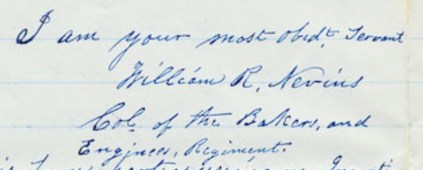 I am your most Obdt. Servant
William R. Nevins
Col. of the Bakers, and
Engineers, Regiment.